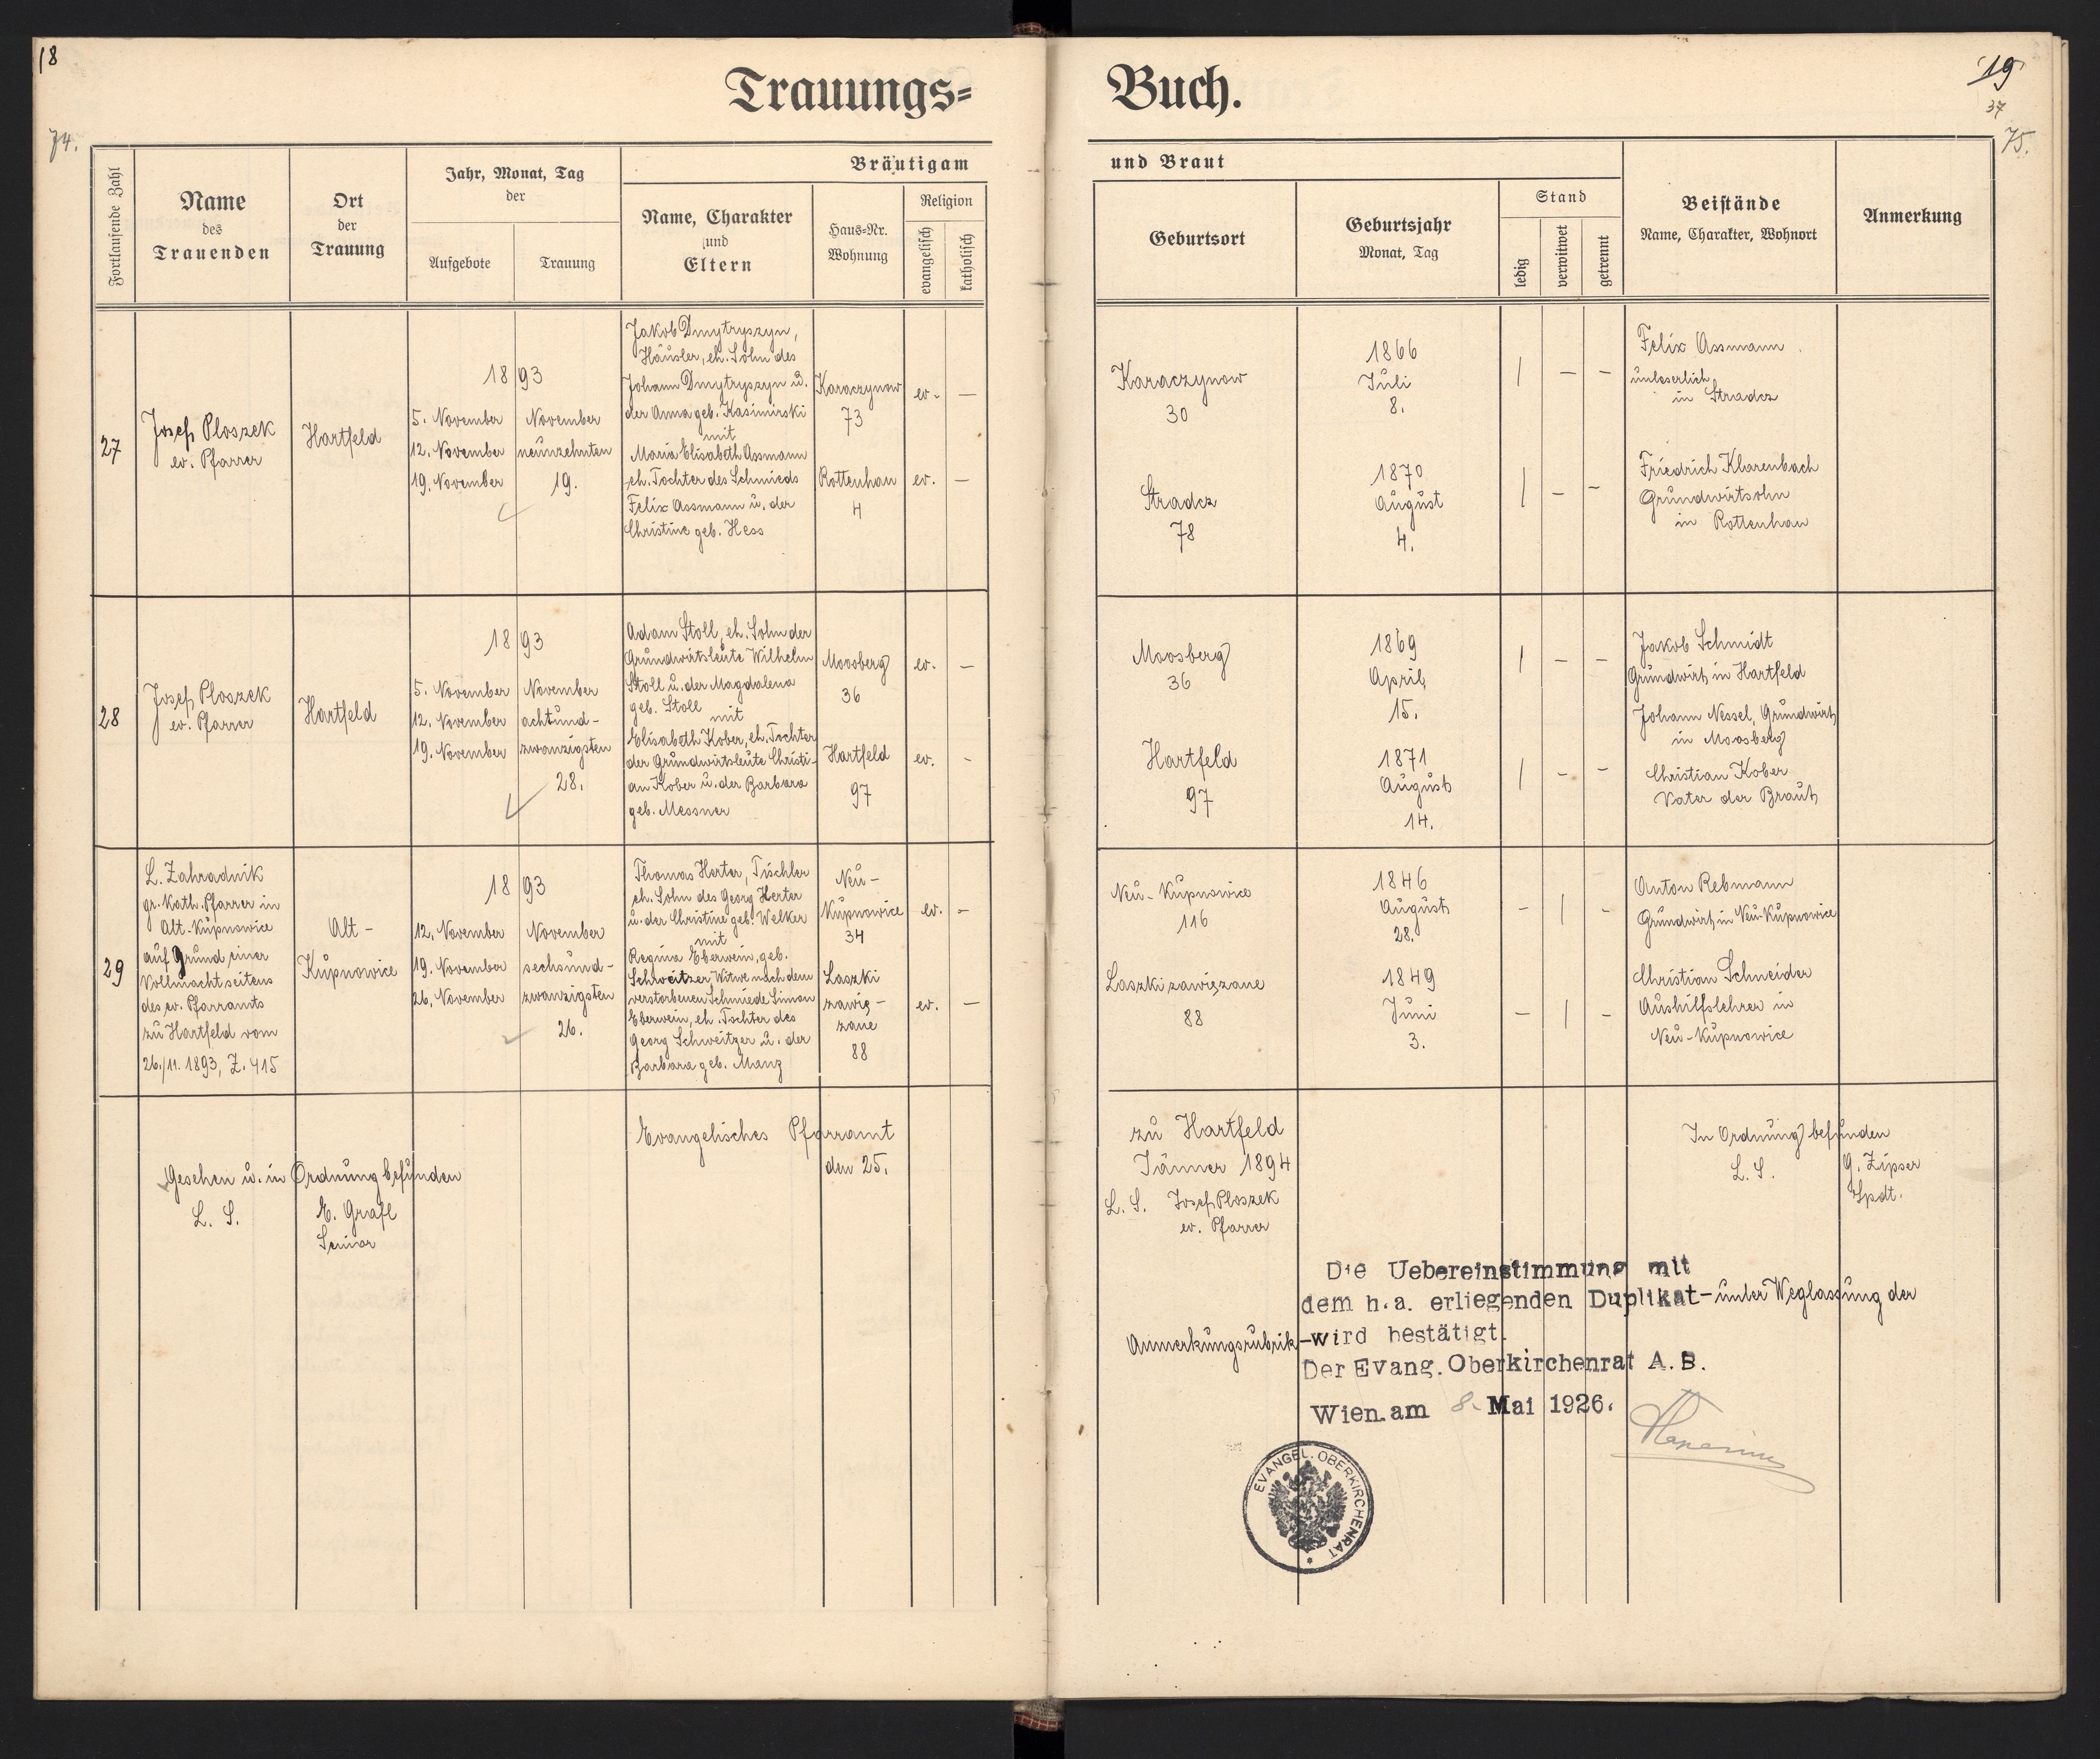 18
74.
Trauungs=
Fortlaufende Zahl
Name
des
Trauenden
Ort
der
Trauung
Jahr, Monat, Tag
der
Aufgebote
Trauung
Bräutigam
Name, Charakter
und
Eltern
Haus=Nr.
Wohnung
Religion
evangelisch
katholisch
27
Josef Ploszek
ev. Pfarrer
Hartfeld
1893
5. November
12. November
19. November
November
neunzehnten
19.
Jakob Dmytryszyn,
Häusler, eh. Sohn des
Johann Dmytryszyn u.
der Anna geb. Kasimirski
mit
Maria Elisabeth Assmann
eh. Tochter des Schmieds
Felix Assmann u. der
Christine geb. Hess
Karaczynow
73
Rottenhan
4
ev. –
ev. –
28
Josef Ploszek
ev. Pfarrer
Hartfeld
1893
5. November
12. November
19. November
November
achtund-
zwanzigsten
28.
Adam Stoll, eh. Sohn der
Grundwirtsleute Wilhelm
Stoll u. der Magdalena
geb. Stoll
mit
Elisabeth Kober, eh. Tochter
der Grundwirtsleute Christi-
an Kober u. der Barbara
geb. Messner
Moosberg
36
Hartfeld
97
ev. –
ev. –
29
L. Zahradnik
gr. kath. Pfarrer in
Alt-Kupnowice
auf Grund einer
Vollmacht seitens
des ev. Pfarramts
zu Hartfeld vom
26./11. 1893, Z. 415
Alt-
Kupnowice
1893
12. November
19. November
26. November
November
sechsund-
zwanzigsten
26.
Thomas Herter, Tischler
eh. Sohn des Georg Herter
u. der Christine geb. Welker
mit
Regina Eberwein, geb.
Schweitzer, Witwe nach dem
verstorbenen Schmiede Simon
Eberwein, eh. Tochter des
Georg Schweitzer u. der
Barbara geb. Manz
Neu-
Kupnowice
34
Laszki
zawią-
zane
88
ev. –
ev. –
Gesehen u. in Ordnung befunden
L. S.
E. Grafl
Senior
Evangelisches Pfarramt
den 25.
19
37
75.
Buch.
und Braut
Geburtsort
Geburtsjahr
Monat, Tag
Stand
ledig
verwitwet
getrennt
Beistände
Name, Charakter, Wohnort
Anmerkung
Karaczynow
30
1866
Juli
8.
| – –
Felix Assmann
unleserlich
in Stradcz
Stradcz
78
1870
August
4.
| – –
Friedrich Klarenbach
Grundwirtsohn
in Rottenhan
Moosberg
36
1869
April
15.
| – –
Jakob Schmidt
Grundwirt in Hartfeld
Johann Nessel, Grundwirt
in Moosberg
Hartfeld
97
1871
August
14.
| – –
Christian Kober
Vater der Braut
Neu-Kupnowice
116
1846
August
28.
– | –
Anton Rebmann
Grundwirt in Neu-Kupnowice
Laszki zawiązane
88
1849
Juni
3.
– | –
Christian Schneider
Aushilfslehrer in
Neu-Kupnowice
zu Hartfeld
Jänner 1894
L. S. Josef Ploszek
ev. Pfarrer
In Ordnung befunden
L. S.
G. Zipser
Spdt.
Die Uebereinstimmung mit
dem h.a. erliegenden Duplikat-unter Weglassung der
Anmerkungsrubrik-wird bestätigt.
Der Evang. Oberkirchenrat A.B.
Wien.am 8. Mai 1926.
EVANGEL. OBERKIRCHENRAT